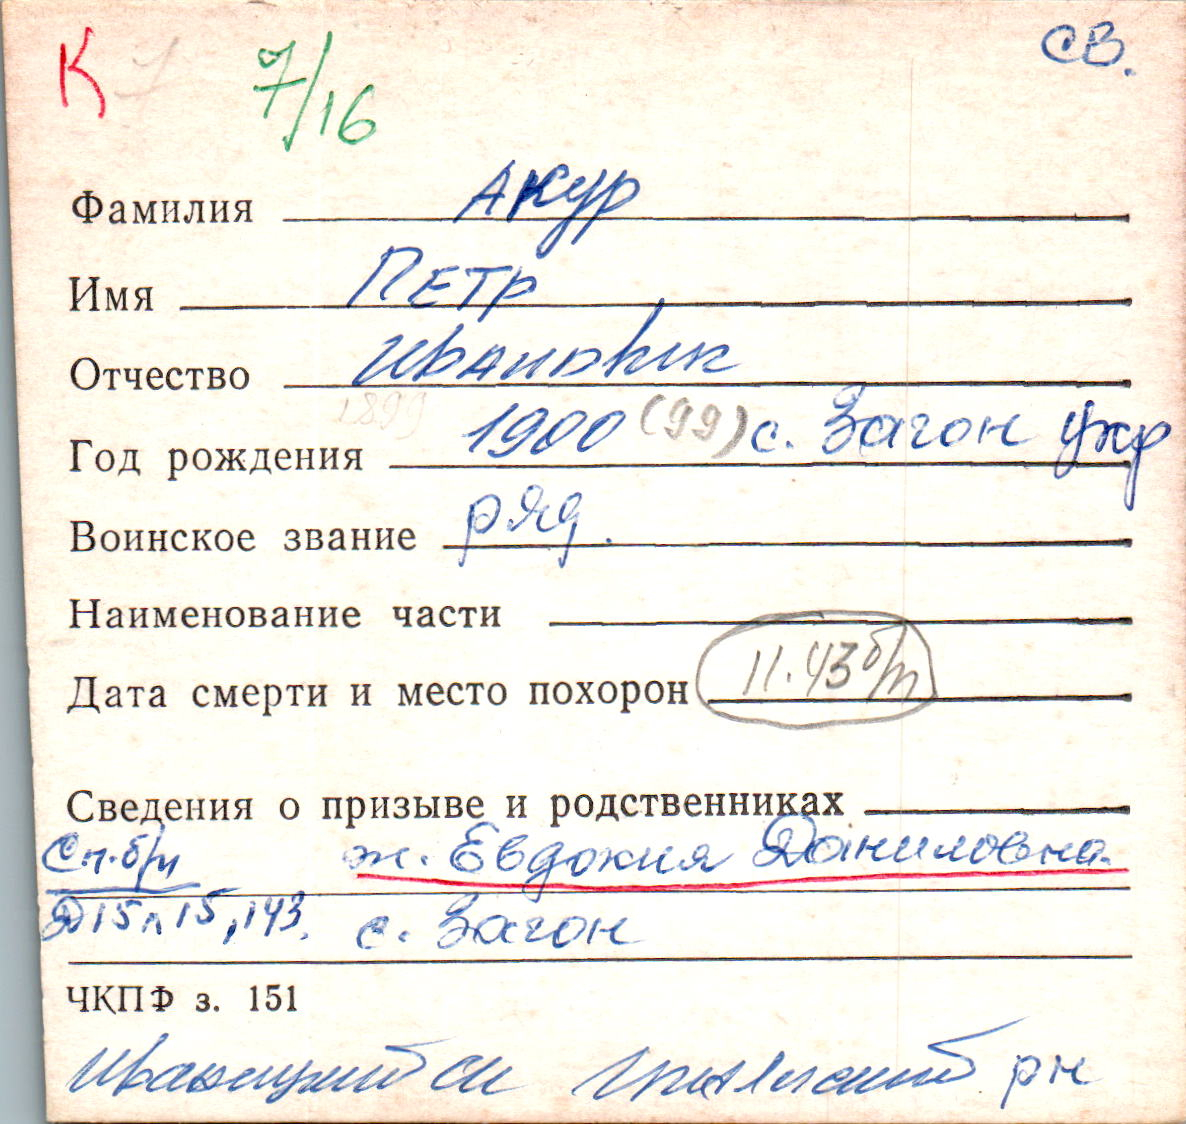 К 7 7/16 СВ.
Фамилия Акур
Имя ПЕТР
Отчество Иванович
1899
Год рождения 1900 (99) с. Загон Укр
Воинское звание ряд.
Наименование части
Дата смерти и место похорон 11.43 б/п
Сведения о призыве и родственниках
Сп. б/п ж. Евдокия Даниловна.
Д15 л 15, 143. с. Загон
ЧКПФ з. 151
рн